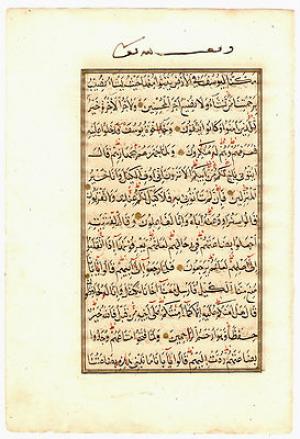 مكنا ليوسف في الارض يتبوا منها حيث يشاء نصيب
برحمتنا من نشاء ولا نضيع اجر المحسنين ولاجر الاخرة خير
للذين امنوا وكانوا يتقون وجاء اخوة يوسف فدخلوا عليه
فعرفهم وهم له منكرون ولما جهزهم بجهازهم قال
ائتوني باخ لكم من ابيكم الا ترون اني اوفي الكيل وانا خير
المنزلين فان لم تاتوني به فلا كيل لكم عندي ولا تقربون
قالوا سنراود عنه اباه وانا لفاعلون وقال لفتيانه
اجعلوا بضاعتهم في رحالهم لعلهم يعرفونها اذا انقلبوا
الى اهلهم لعلهم يرجعون فلما رجعوا الى ابيهم قالوا يا ابانا
منع منا الكيل فارسل معنا اخانا نكتل وانا له لحافظون
قال هل امنكم عليه الا كما امنتكم على اخيه من قبل فالله خير
حفظا وهو ارحم الراحمين ولما فتحوا متاعهم وجدوا
بضاعتهم ردت اليهم قالوا يا ابانا ما نبغي هذه بضاعتنا